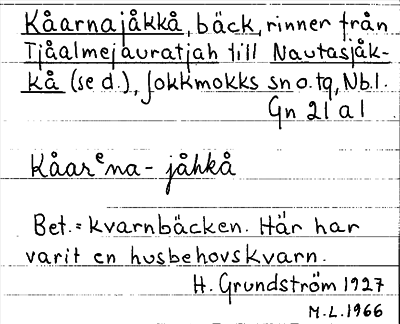 Kåarnajåkkå, bäck, rinner från
Tjåalmejauratjah till Nautasjåk-
kå (se d.), Jokkmokks sn o. tg, Nb.l.
Gn 21 a 1
Kåarᵉna-jåhkå
Bet. = kvarnbäcken. Här har
varit en husbehovskvarn.
H. Grundström 1927
M.L. 1966